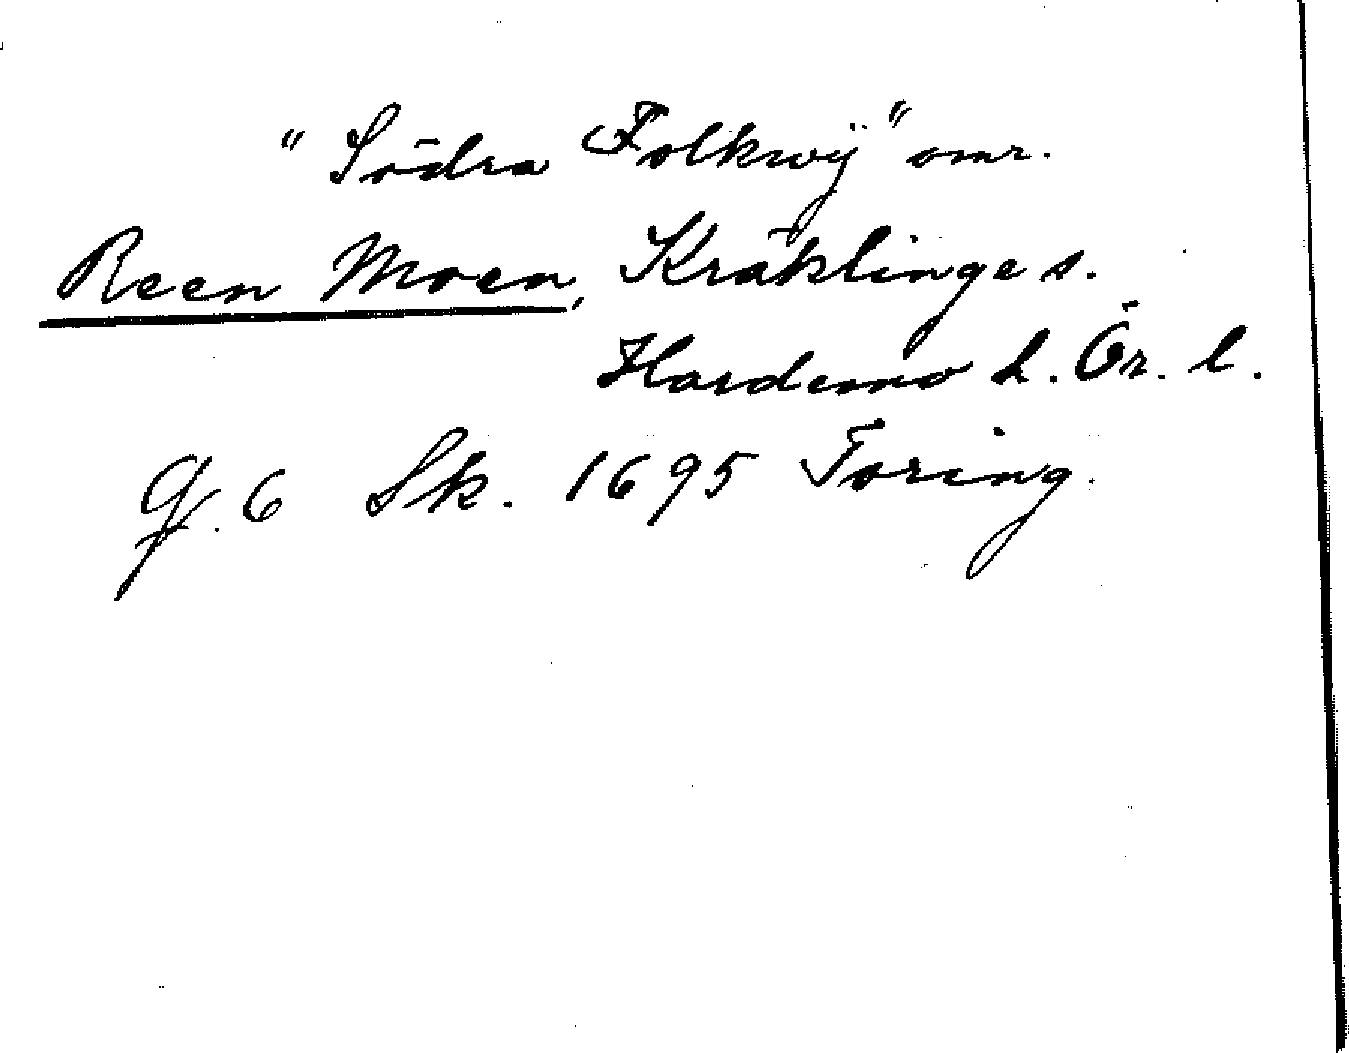 "Södra Folkwÿ" omr.
Reen Moen, Kräklinge s.
Hardemo h. Ör. l.
Q. 6 Sk. 1695 Toring.